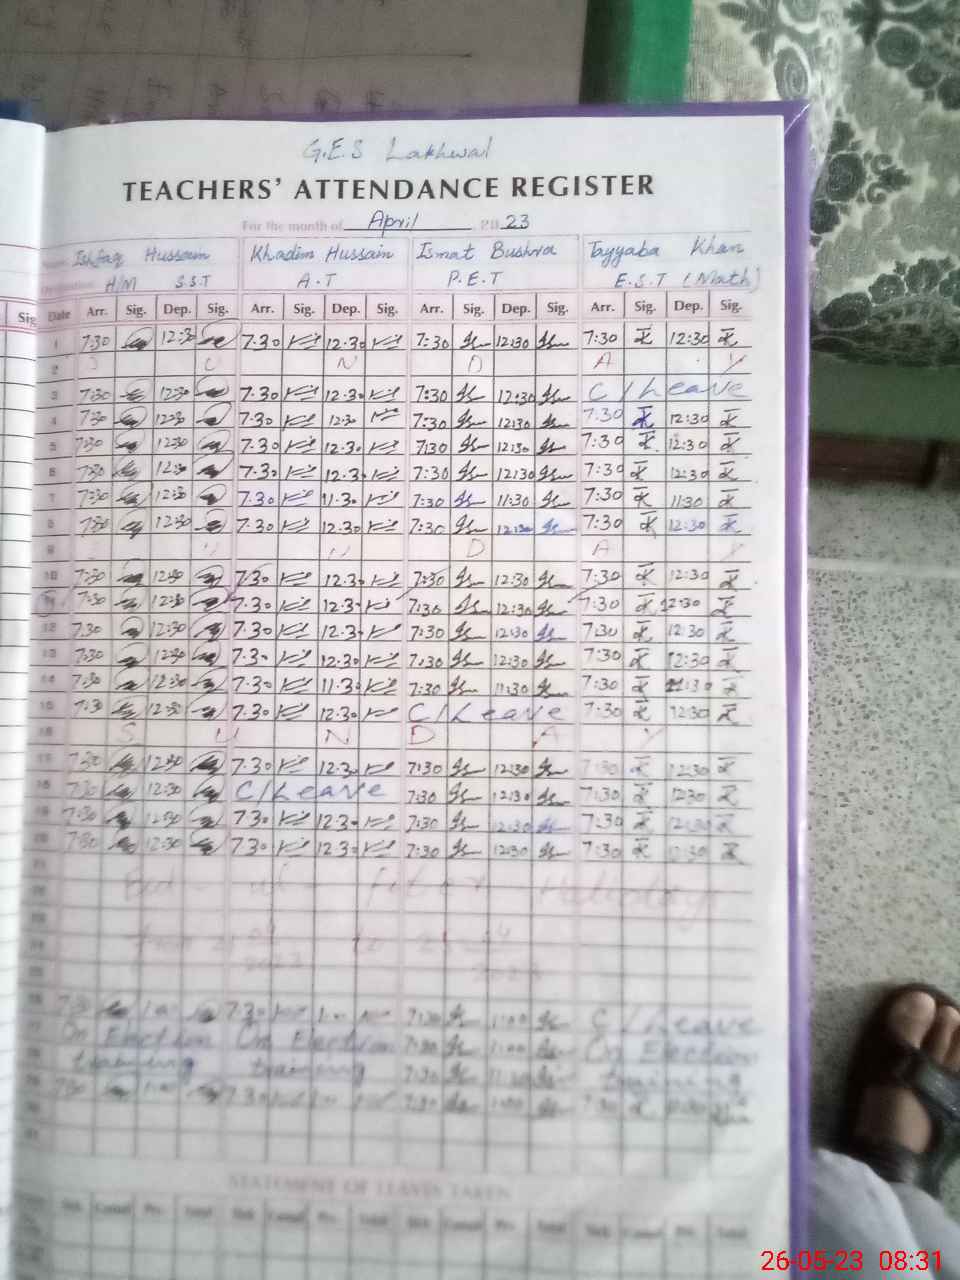 G.E.S Lakhwal
TEACHERS' ATTENDANCE REGISTER
For the month of April 2023
Ishfaq Hussain Khadim Hussain Ismat Bushra Tayyaba Khan
H/M S.S.T A.T P.E.T E.S.T (Math)
Sig Date Arr. Sig. Dep. Sig. Arr. Sig. Dep. Sig. Arr. Sig. Dep. Sig. Arr. Sig. Dep. Sig.
1 7:30 12:30 7.30 12.30 7:30 12:30 7:30 12:30
2 S U N D A Y
3 7:30 12:30 7.30 12.30 7:30 12:30 C/Leave
4 7:30 12:30 7.30 12:30 7:30 12:30 7:30 12:30
5 7:30 12:30 7.30 12.30 7:30 12:30 7:30 12:30
6 7:30 12:30 7.30 12.30 7:30 12:30 7:30 12:30
7 7:30 12:30 7.30 11.30 7:30 11:30 7:30 11:30
8 7:30 12:30 7.30 12.30 7:30 12:30 7:30 12:30
9 U N D A Y
10 7:30 12:30 7.30 12.30 7:30 12:30 7:30 12:30
11 7:30 12:30 7.30 12.30 7:30 12:30 7:30 12:30
12 7:30 12:30 7.30 12.30 7:30 12:30 7:30 12:30
13 7:30 12:30 7.30 12.30 7:30 12:30 7:30 12:30
14 7:30 12:30 7.30 11.30 7:30 11:30 7:30 11:30
15 7:30 12:30 7.30 12.30 C/Leave 7:30 12:30
16 S U N D A Y
17 7:30 12:30 7.30 12.30 7:30 12:30 7:30 12:30
18 7:30 12:30 C/Leave 7:30 12:30 7:30 12:30
19 7:30 12:30 7.30 12.30 7:30 12:30 7:30 12:30
20 7:30 12:30 7.30 12.30 7:30 12:30 7:30 12:30
Eid ul fiter Holidays
from 21 04 2023 to 25 04 2023
7:30 1:00 7.30 1:00 7:30 1:00 C/Leave
On Election On Election 7:30 1:00 On Election
training training 7:30 training
7:30 1:00 7.30 7:30 1:00 7:30
STATEMENT OF LEAVES TAKEN
Sick Casual Pri. Total Sick Casual Pri. Total Sick Casual Pri. Total Sick Casual Pri. Total
26-05-23 08:31